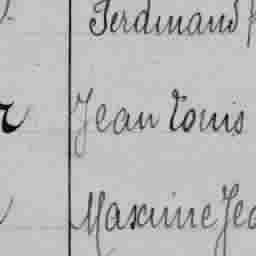 Ferdinand
Jean Louis
Maxime Jea